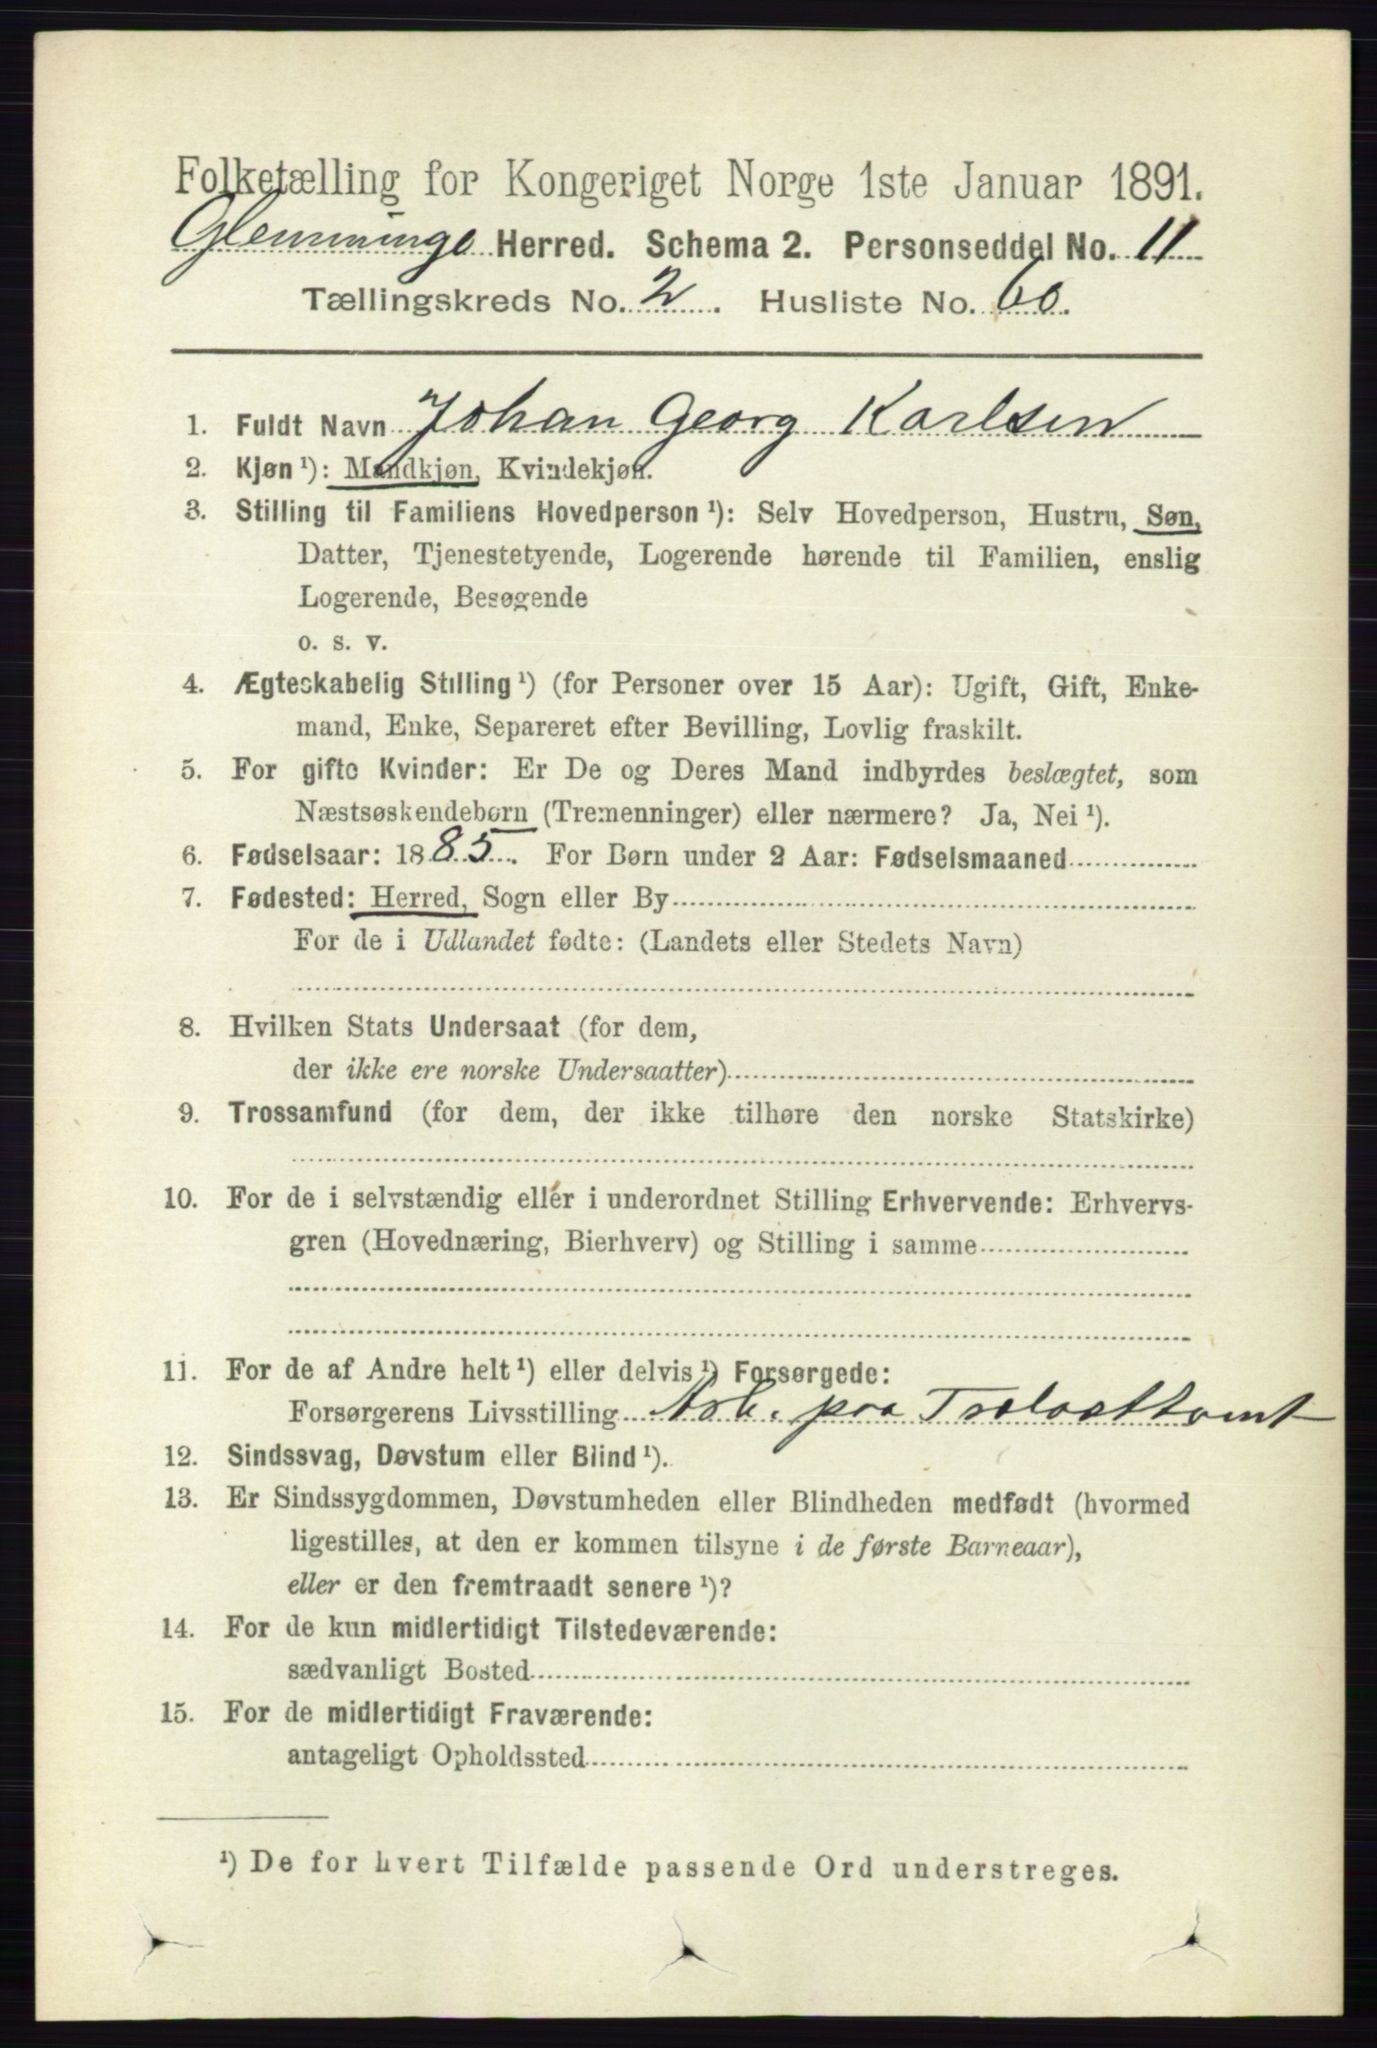 Folketælling for Kongeriget Norge 1ste Januar 1891.
Glemminge Herred. Schema 2. Personseddel No. 11
Tællingskreds No. 2. Husliste No. 60.
1. Fuldt Navn Johan Georg Karlsen
2. Kjøn ¹): Mandkjøn, Kvindekjøn.
3. Stilling til Familiens Hovedperson ¹): Selv Hovedperson, Hustru, Søn,
Datter, Tjenestetyende, Logerende hørende til Familien, enslig
Logerende, Besøgende
o. s. v.
4. Ægteskabelig Stilling ¹) (for Personer over 15 Aar): Ugift, Gift, Enke-
mand, Enke, Separeret efter Bevilling, Lovlig fraskilt.
5. For gifte Kvinder: Er De og Deres Mand indbyrdes beslægtet, som
Næstsøskendebørn (Tremenninger) eller nærmere? Ja, Nei ¹).
6. Fødselsaar: 1885. For Børn under 2 Aar: Fødselsmaaned
7. Fødested: Herred, Sogn eller By
For de i Udlandet fødte: (Landets eller Stedets Navn)
8. Hvilken Stats Undersaat (for dem,
der ikke ere norske Undersaatter)
9. Trossamfund (for dem, der ikke tilhøre den norske Statskirke)
10. For de i selvstændig eller i underordnet Stilling Erhvervende: Erhvervs-
gren (Hovednæring, Bierhverv) og Stilling i samme
11. For de af Andre helt ¹) eller delvis ¹) Forsørgede:
Forsørgerens Livsstilling Arb. paa Trelasttomt
12. Sindssvag, Døvstum eller Blind ¹).
13. Er Sindssygdommen, Døvstumheden eller Blindheden medfødt (hvormed
ligestilles, at den er kommen tilsyne i de første Barneaar),
eller er den fremtraadt senere ¹)?
14. For de kun midlertidigt Tilstedeværende:
sædvanligt Bosted
15. For de midlertidigt Fraværende:
antageligt Opholdssted
¹) De for hvert Tilfælde passende Ord understreges.